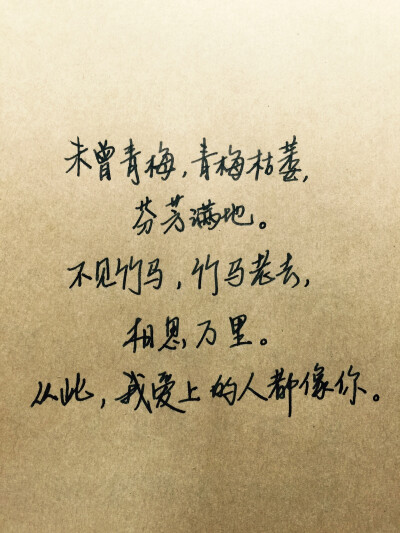 未曾青梅，青梅枯萎，
芬芳满地。
不见竹马，竹马老去，
相思万里。
从此，我爱上的人都像你。